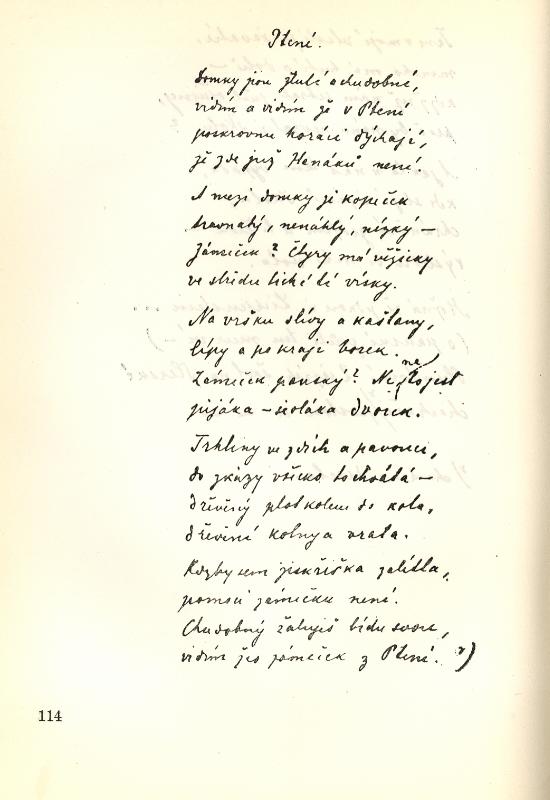 Ptení.
Domky jsou žluté a chudobné,
vidím a vidím že v Ptení
poskrovnu horáci dýchají,
že zde již Hanáků není.
A mezi domky je kopeček
travnatý, nenáhlý, nízký —
Zámeček? Čtyry má věžičky
ve středu tiché té vísky.
Na vršku slívy a kaštany,
lípy a po kraji borek.
Zámeček panský? Ne na to jest
pijáka – sedláka dvorek.
Trhliny ve zdích a pavouci,
do zkázy všecko to chvátá —
dřevěný plot kolem do kola,
dřevěné kolny a vrata.
Kdyby sem jiskřička zalítla,
pomoci zámečku není.
Chudobný žaluješ bídu svou,
vidím jej zámeček z Ptení.
114